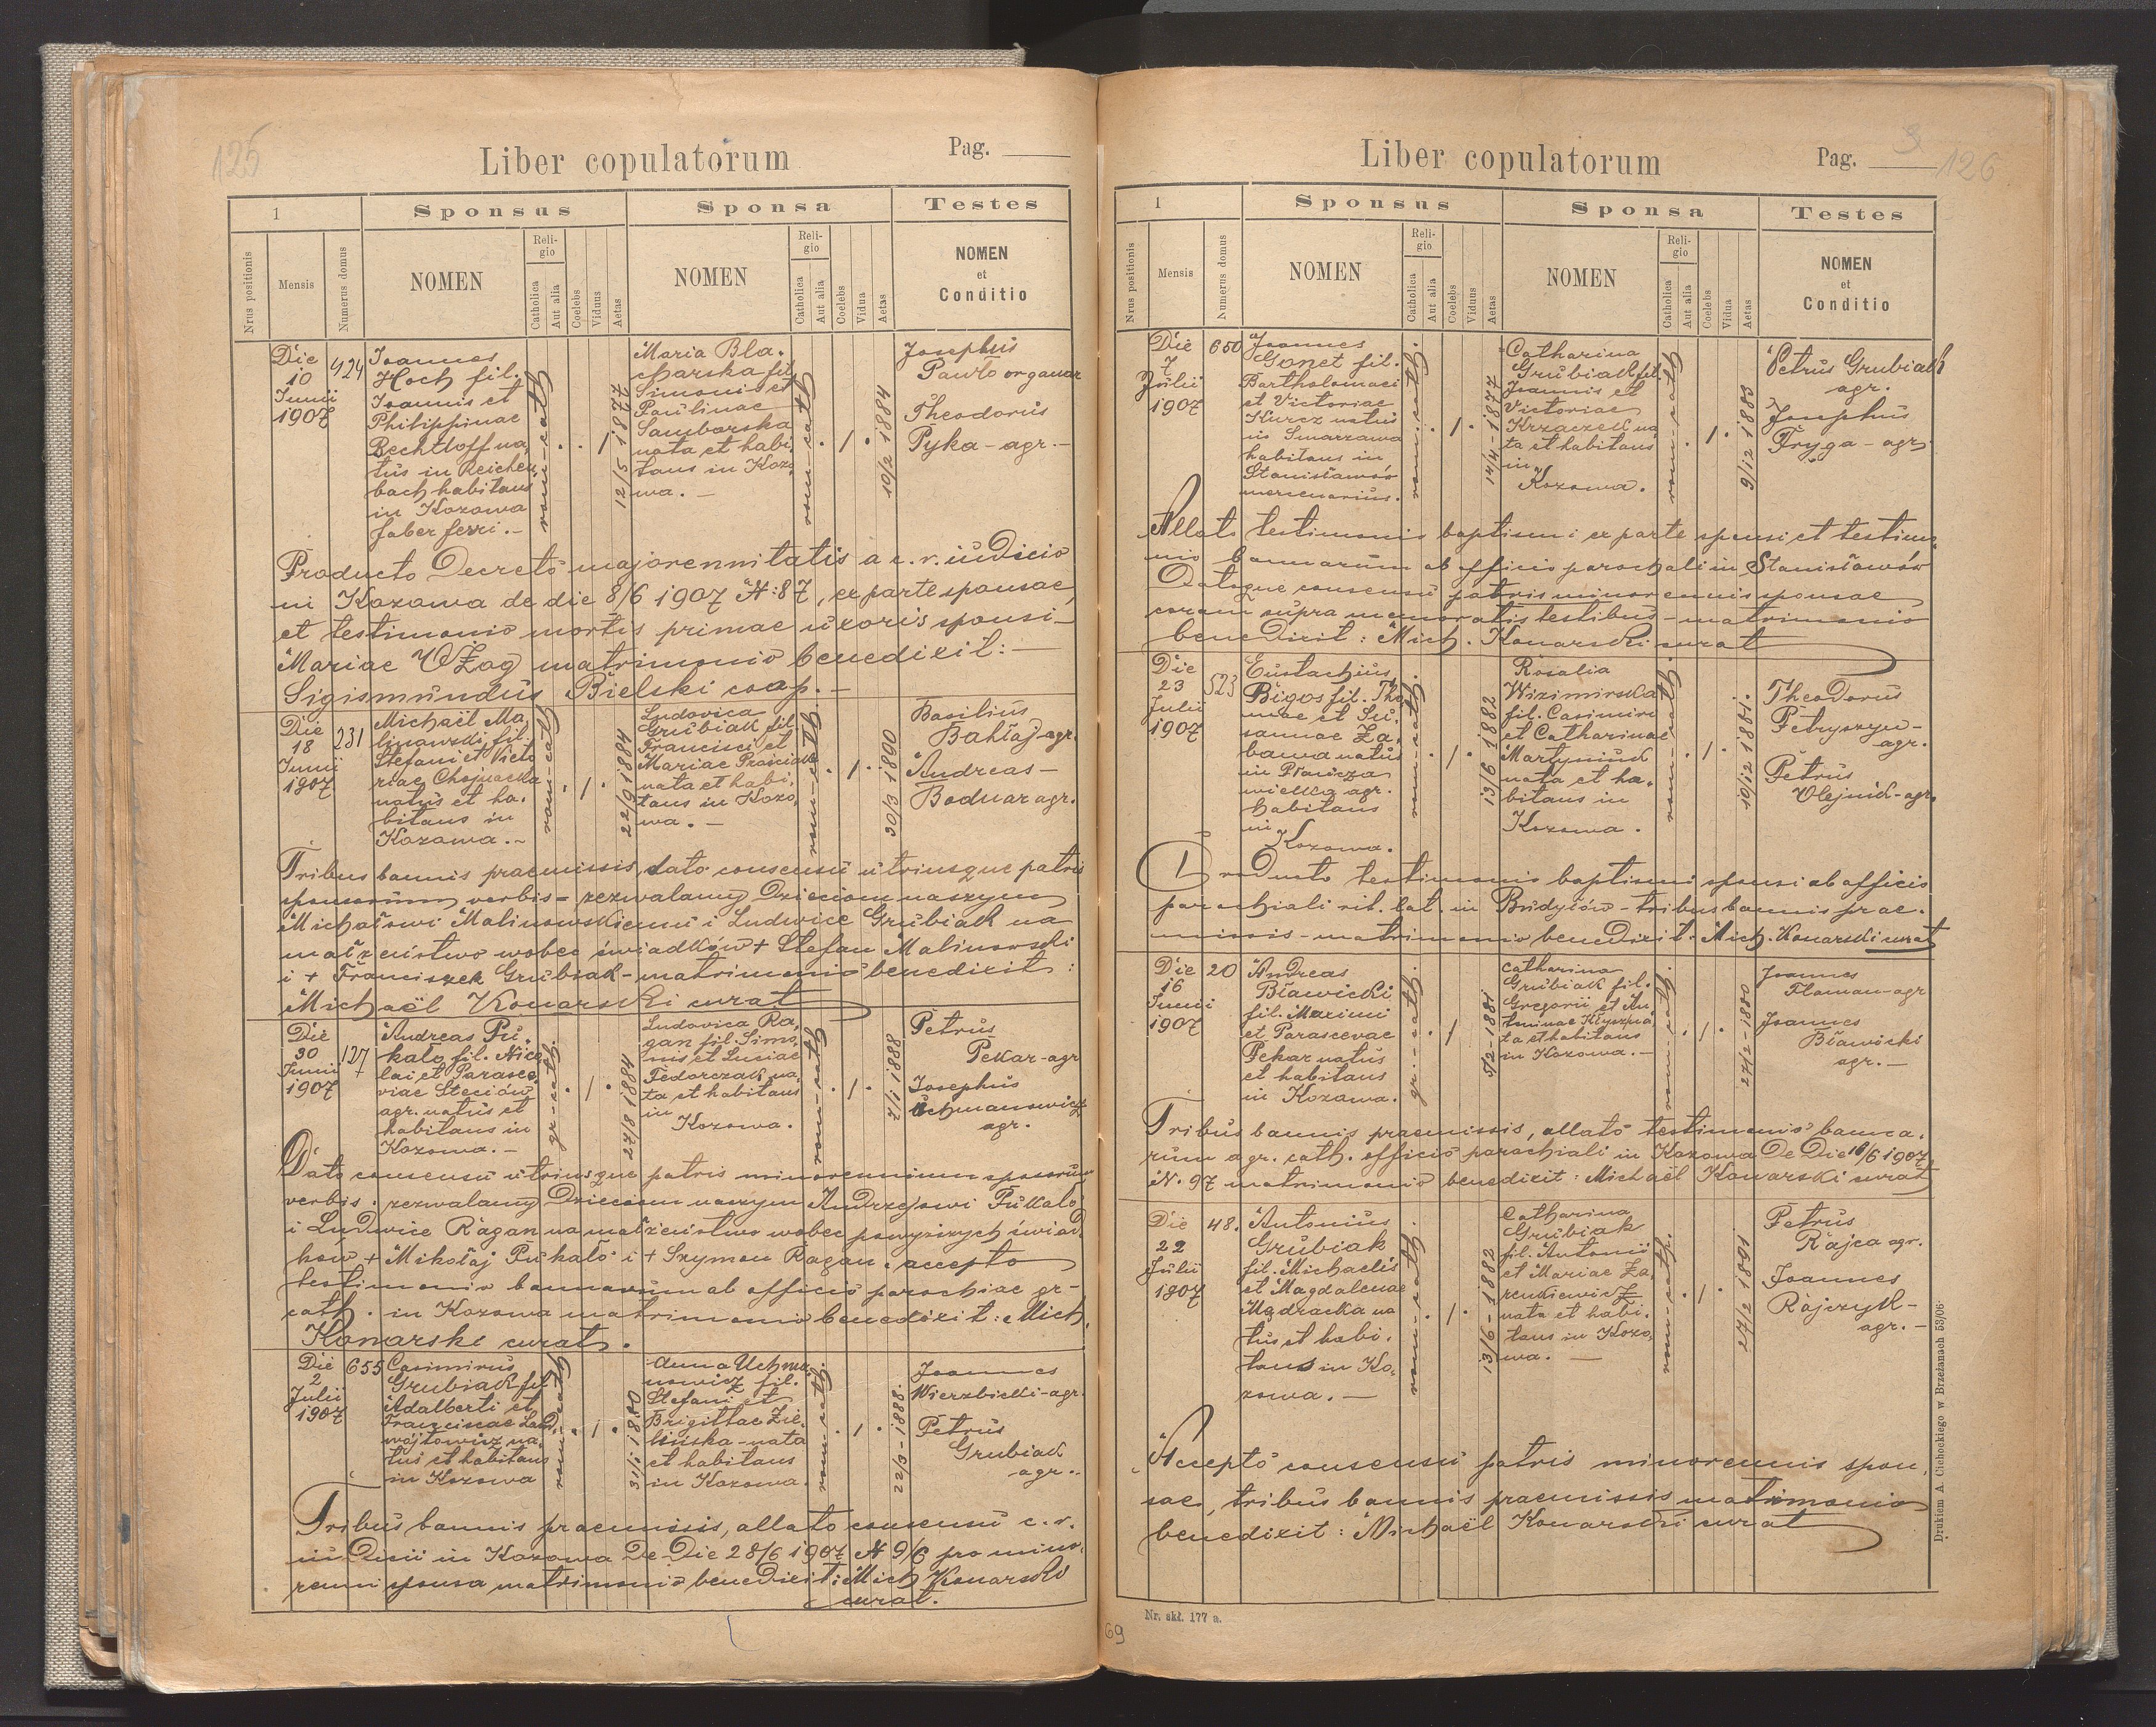 125
Liber copulatorum
Pag.
1
Sponsus
Sponsa
Testes
Nrus positionis
Mensis
Numerus domus
NOMEN
Religio
Catholica
Aut alia
Coelebs
Viduus
Aetas
NOMEN
Religio
Catholica
Aut alia
Coelebs
Vidua
Aetas
NOMEN
et
Conditio
Die
10
Junii
1907
424
Joannes
Hoch fil.
Joannis et
Philippinae
Bechtloff na-
tus in Reichen
bach habitans
in Kozowa
faber ferri.-
rom-cath
1
12/5 1877
Maria Bla-
charska fil
Simonis et
Paulinae
Samborska
nata et habi-
tans in Kozo
wa.-
rom-cath
1
10/2 1884
Josephus
Pawło organar
Theodorus
Pyka - agr.-
Producto Decreto majorennitatis a c. r. iudicio
in Kozowa de die 8/6 1907 N: 87, ex parte sponsae,
et testimonio mortis primae uxoris sponsi-
Mariae Ożog matrimonio benedixit:-
Sigismundus Bielski coop.-
Die
18
Junii
1907
231
Michaël Ma-
linowski fil.
Stefani et Victo
riae Chojnacka
natus et ha-
bitans in
Kozowa.-
rom-cath
1
22/9 1884
Ludovica
Grubiak fil
Francisci et
Mariae
nata et habi-
tans in Kozo,
wa.-
rom-cath.
1
30/3 1890
Basilius
Bahłaj-agr.
Andreas-
Bodnar agr.
Tribus bannis praemissis, dato consensu utriusque patris
sponsorum verbis - zezwalamy Dzieciom naszym
Michałowi Malinowskiemu i Ludwice Grubiak na
małżeństwo wobec świadków + Stefan Malinowski
i + Franciszek Grubiak - matrimonio benedixit:
Michaël Konarski curat
Die
30
Junii
1907
127
Andreas Pu-
kało fil. Nico
lai et Parasce
viae Steciów
agr. natus et
habitans in
Kozowa.-
gr-cath.
1
27/8 1884
Ludovica Ra,
gan fil. Simo,
nis et Luciae
Fedorczak na,
ta et habitans
in
Kozowa.
rom-cath
1
7/1 1888
Petrus
Pekar-agr
Josephus
Uchmanowicz
agr.
Dato consensu utriusque patris minorennium sponsorum
verbis: zezwalamy Dzieciom naszym Andrzejowi Pukało
i Ludwice Ragan na małżeństwo wobec powyższych świad,
ków + Mikołaj Pukało i + Szymon Ragan: accepto
testimonio bannorum ab officio parochiae gr-
cath. in Kozowa matrimonio benedixit: Mich,
Konarski curat.
Die
2
Julii
1907
655
Casimirus
Grubiak fil
Adalberti et
Franciscae Land,
wójtowicz na,
tus et habitans
in Kozowa
rom-cath
1
31/1 1880
Anna Uchma
nowicz fil.
Stefani et
Brigittae Zie,
lińska-nata
et habitans
in Kozowa.
rom-cath.
1
22/3-1888
Joannes
Wierzbicki-agr.
Petrus
Grubiak
agr..
Tribus bannis praemissis, allato consensu c. r.
iudicii in Kozowa De Die 28/6 1907 N 9/6 pro mino,
renni sponsa matrimonio benedixit: Mich Konarski
curat.
126
Liber copulatorum
Pag.
1
Sponsus
Sponsa
Testes
Nrus positionis
Mensis
Numerus domus
NOMEN
Religio
Catholica
Aut alia
Coelebs
Viduus
Aetas
NOMEN
Religio
Catholica
Aut alia
Coelebs
Vidua
Aetas
NOMEN
et
Conditio
Die
7
Julii
1907
650
Joannes
Gonet fil.
Bartholomaei
et Victoriae
Kurcz natus
in Smarzowa
habitans in
Stanisławów
mercenarius.
rom-cath.
1
14/4-1877
Catharina
Grubiak fil.
Joannis et
Victoriae
Krzaczek na
ta et habitans
in
Kozowa.
rom-cath
1
9/12 1883
Petrus Grubiak
agr.
Josephus
Fryga - agr.
Allato testimonio baptismi ex parte sponsi et testimo,
nio bannorum ab officio parochali in Stanisławów
Datoque consensu patris minorennis sponsae
coram supra memoratis testibus - matrimonio
benedixit: Mich. Konarski curat
Die
23
Julii
1907
523
Eustachius
Bigos fil. Tho
mae et Su,
sannae Za,
bawa natus
in Płaucza
wielka agr.
habitans
in
Kozowa.
rom-cath.
1
13/6 1882
Rosalia
Wizimirska
fil. Casimiri
et Catharinae
Martyniuk
nata et ha-
bitans in
Kozowa.
rom-cath.
1
10/12 1881.
Theodorus
Petryszyn-
agr.
Petrus
Olejnik-agr.
Producto testimonio baptismi sponsi ab officio
parochiali rit. lat. in Budyłów - tribus bannis prae-
missis - matrimonio benedixit: Mich. Konarski curat
Die
16
Junii
1907
20
Andreas
Bławicki
fil. Maximi
et Parascevae
Pekar natus
et habitans
in Kozowa.
gr.-cath.
1
5/2-1881
Catharina
Grubiak fil.
Gregorii et An
toninae
ta et habitans
in Kozowa.-
rom-cath.
1
27/2-1880
Joannes
Flaman-agr
Joannes
Bławicki
agr.-
Tribus bannis praemissis, allato testimonio banno-
rum a gr. cath. officio parochiali in Kozowa De Die 16/6 1907
N. 97 matrimonio benedixit: Michaël Konarski curat
Die
22
Julii
1907
48.
Antonius
Grubiak
fil. Michaelis
et Magdalenae
Mądzacka na
tus et habi-
tans in Ko,
zowa.-
rom-cath.
1
13/6-1882
Catharina
Grubiak
fil. Antonii
et Mariae Za,
renkiewicz
nata et habi-
tans in Kozo,
wa.-
rom-cath.
1
27/2 1891
Petrus
Rajca agr.
Joannes
Rajczyk-
agr.-
Accepto consensu patris minorennis spon,
sae, tribus bannis praemissis matrimonio
benedixit: Michaël Konarski curat
Drukiem A. Cichockiego w Brzeżanach 53/06.
Nr. skł. 177 a.
69